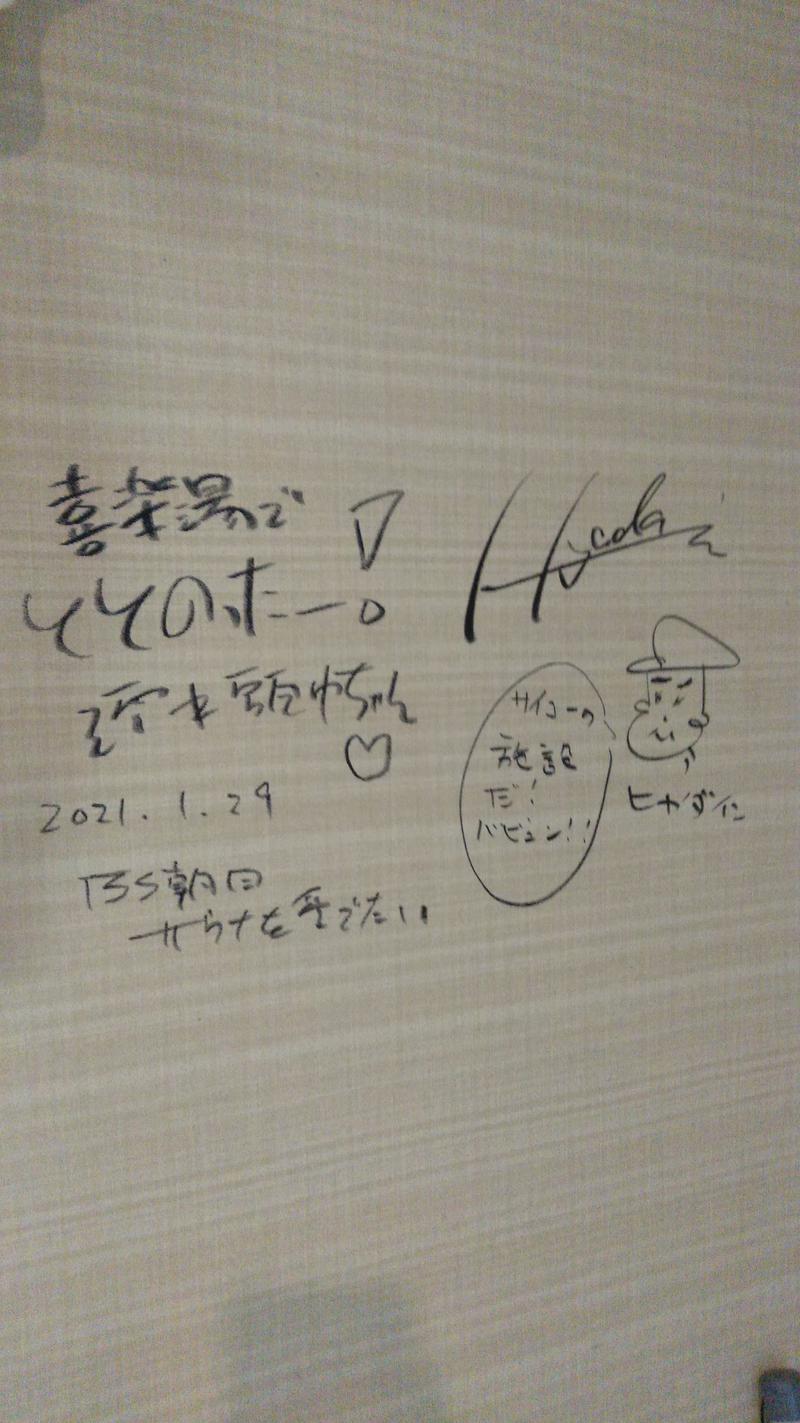 喜楽湯で
ととのったー!
濡れ頭巾ちゃん
2021.1.29
BS朝日
サウナを愛でたい
Hyadain
サイコーの
施設
だ!
バビュン!!
ヒャダイン